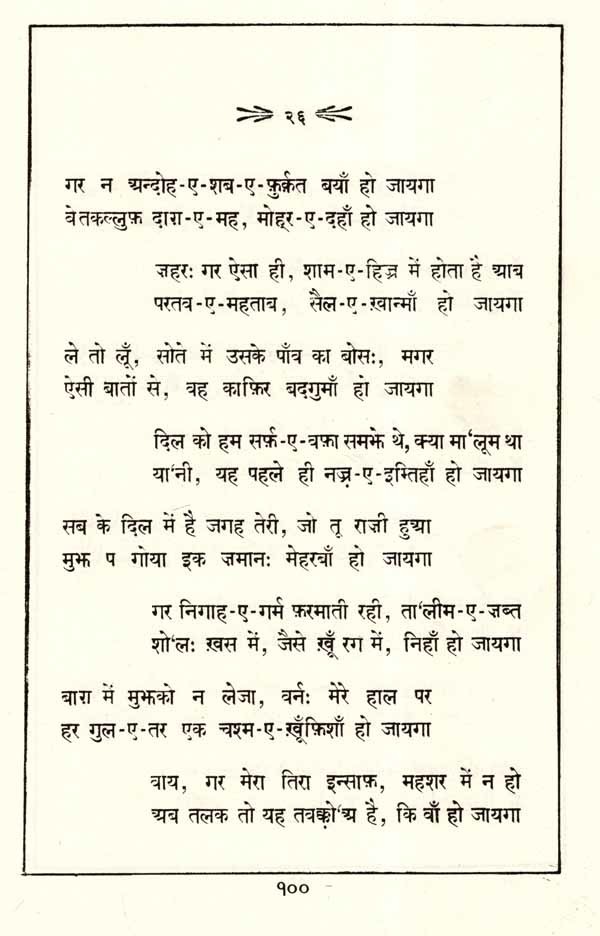 २६
गर न अन्दोह-ए-शब-ए-फ़ुर्क़त बयाँ हो जायगा
बेतकल्लुफ़ दाग़-ए-मह, मोह्र-ए-दहाँ हो जायगा
ज़हरः गर ऐसा ही, शाम-ए-हिज्र में होता है आब
परतव-ए-महताब, सैल-ए-ख़ान्माँ हो जायगा
ले तो लूँ, सोते में उसके पाँव का बोसः, मगर
ऐसी बातों से, वह काफ़िर बदगुमाँ हो जायगा
दिल को हम सर्फ़-ए-वफ़ा समझे थे, क्या मा'लूम था
या'नी, यह पहले ही नज़्र-ए-इम्तिहाँ हो जायगा
सब के दिल में है जगह तेरी, जो तू राज़ी हुआ
मुझ प गोया इक ज़मानः मेहरबाँ हो जायगा
गर निगाह-ए-गर्म फ़रमाती रही, ता'लीम-ए-ज़ब्त
शो'लः ख़स में, जैसे ख़ूँ रग में, निहाँ हो जायगा
बाग़ में मुझको न लेजा, वर्नः मेरे हाल पर
हर गुल-ए-तर एक चश्म-ए-ख़ूँफ़िशाँ हो जायगा
वाय, गर मेरा तिरा इन्साफ़, महशर में न हो
अब तलक तो यह तवक़्क़ो'अ है, कि वाँ हो जायगा
१००